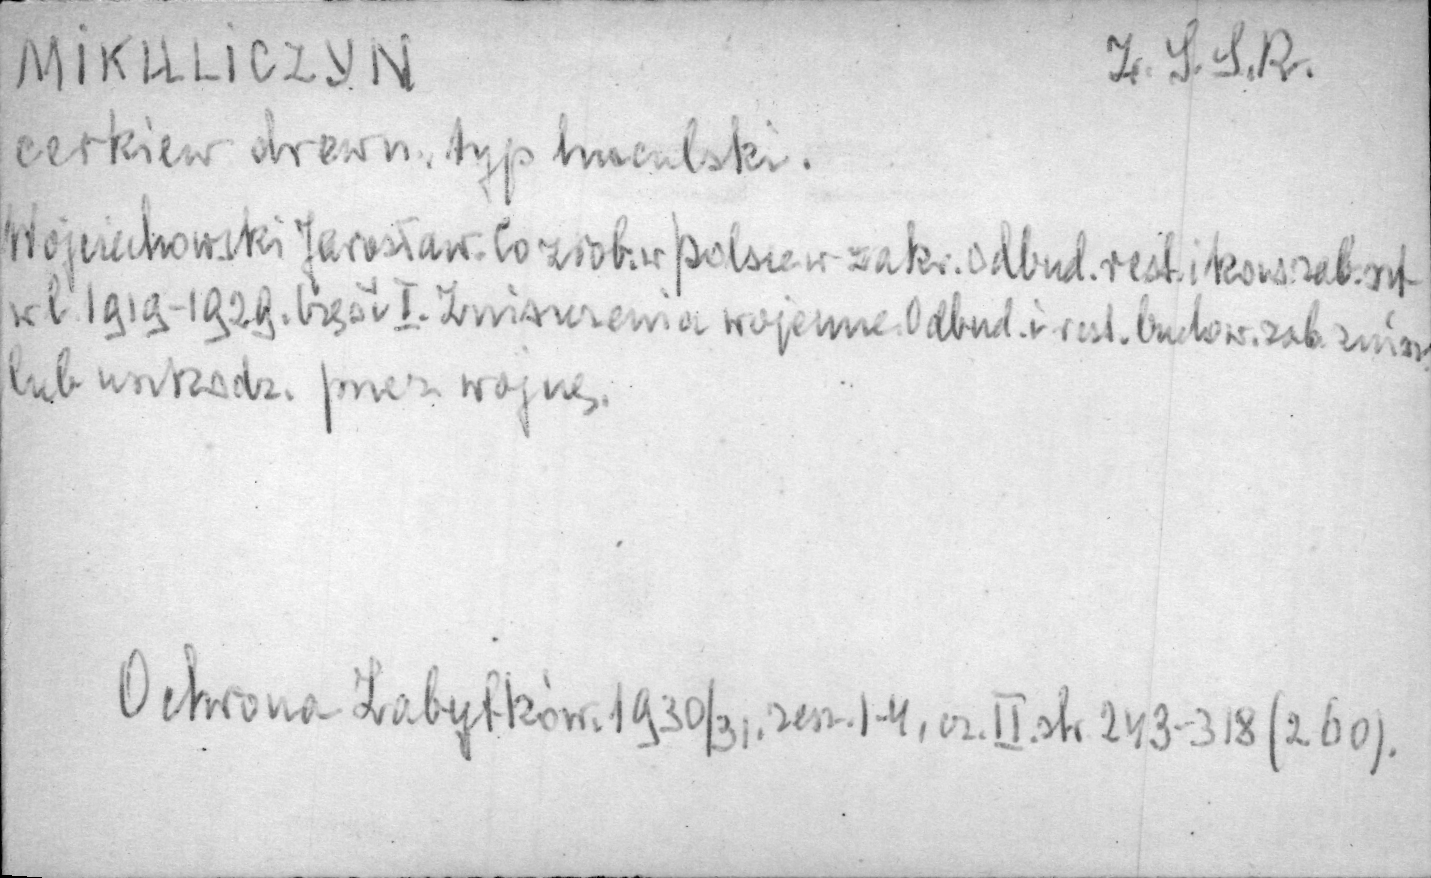 MIKULICZYN Z.S.S.R.
cerkiew drewn. typ huculski.
Wojciechowski Jarosław. Co zrob. w Polsce w zakr. odbud. rest. i kons. zab. szt.
w l. 1919-1929. Część I. Zniszczenia wojenne. Odbud. i rest. budow. zab. zniszcz.
lub uszkodz. przez wojnę.
Ochrona Zabytków. 1930/31. zesz. 1-4, cz. II. str. 243-318 (260).